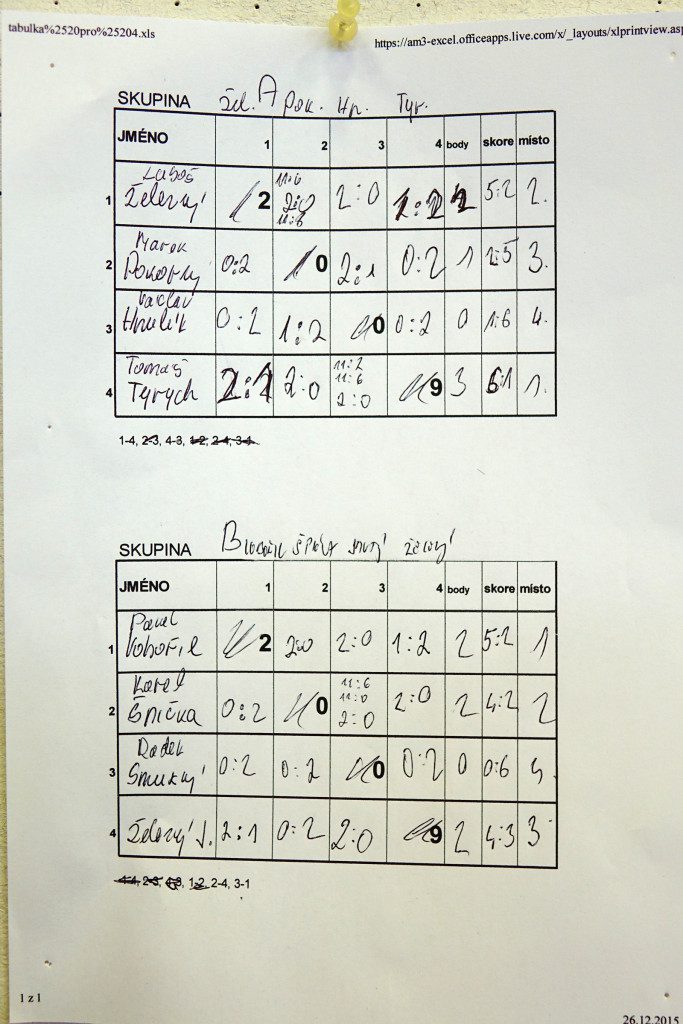 tabulka%2520pro%25204.xls
https://am3-excel.officeapps.live.com/x/_layouts/xlprintview.asp
SKUPINA Žel. A Pok. Hr. Tyr.
JMÉNO 1 2 3 4 body skore místo
1 Luboš Železný 2 11:6 2:0 11:6 2:0 1:2 2 5:2 2.
2 Marek Pokorný 0:2 0 2:1 0:2 1 2:5 3.
3 Václav 0:2 1:2 0 0:2 0 1:6 4.
4 Tomáš Tyrych 2:1 2:0 11:2 11:6 2:0 9 3 6:1 1.
1-4, 2-3, 4-3, 1-2, 2-4, 3-1
SKUPINA B
JMÉNO 1 2 3 4 body skore místo
1 Pavel Vobořil 2 2:0 2:0 1:2 2 5:2 1
2 Karel Špička 0:2 0 11:6 11:0 2:0 2:0 2 4:2 2
3 Radek Smutný 0:2 0:2 0 0:2 0 0:6 4.
4 Železný J. 2:1 0:2 2:0 9 2 4:3 3
1-4, 2-3, 4-3, 1-2, 2-4, 3-1
1 z 1
26.12.2015